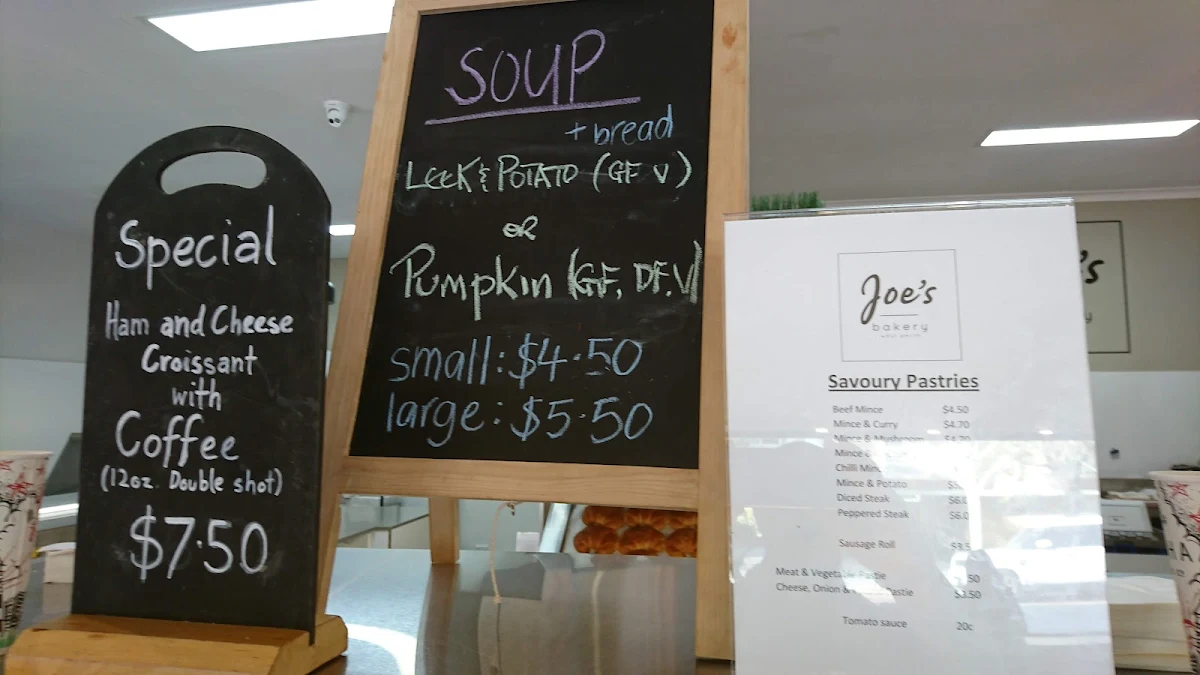 Special
Ham and Cheese
Croissant
with
Coffee
(12oz. Double shot)
$7.50
SOUP
+ bread
LEEK & POTATO (GF V)
OR
Pumpkin (GF, DF, V)
small: $4.50
large: $5.50
Joe's
bakery
Savoury Pastries
Beef Mince $4.50
Mince & Curry $4.70
Mince & Mushroom $4.70
Mince
Chilli Mince
Mince & Potato
Diced Steak
Peppered Steak
Sausage Roll
Meat & Vegetable Pastie
Cheese, Onion &
Tomato sauce 20c